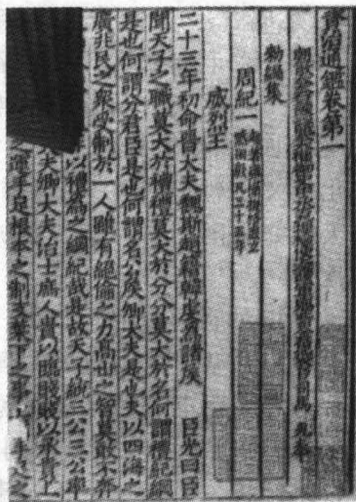 資治通鑑卷第一
勑編集
周紀一
威烈王
二十三年初命晉大夫魏斯趙籍韓虔為諸侯 臣光曰臣
聞天子之職莫大於禮禮莫大於分分莫大於名何謂禮紀綱
是也何謂分君臣是也何謂名公侯卿大夫是也夫以四海之
廣兆民之衆受制於一人雖有絕倫之力高世之智莫敢不奔
以禮為之綱紀哉是故天子統三公三公率
夫卿大夫治士庶人貴以臨賤賤以承貴上
之運手足根本之制支葉下之事